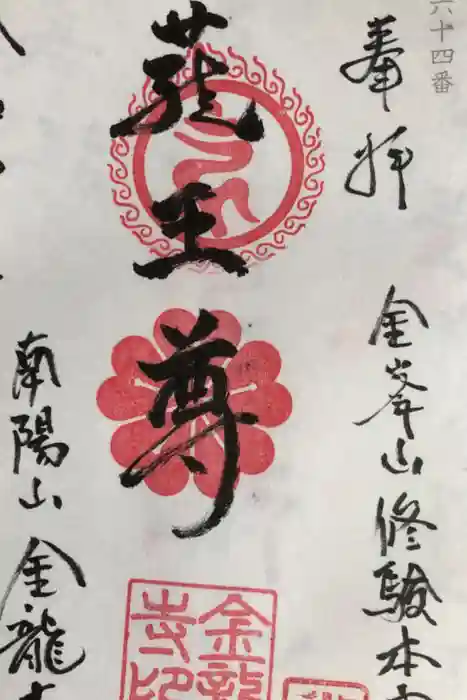 六十四番
奉拝
金峯山修験本
蔵王尊
南陽山金龍
金龍寺印